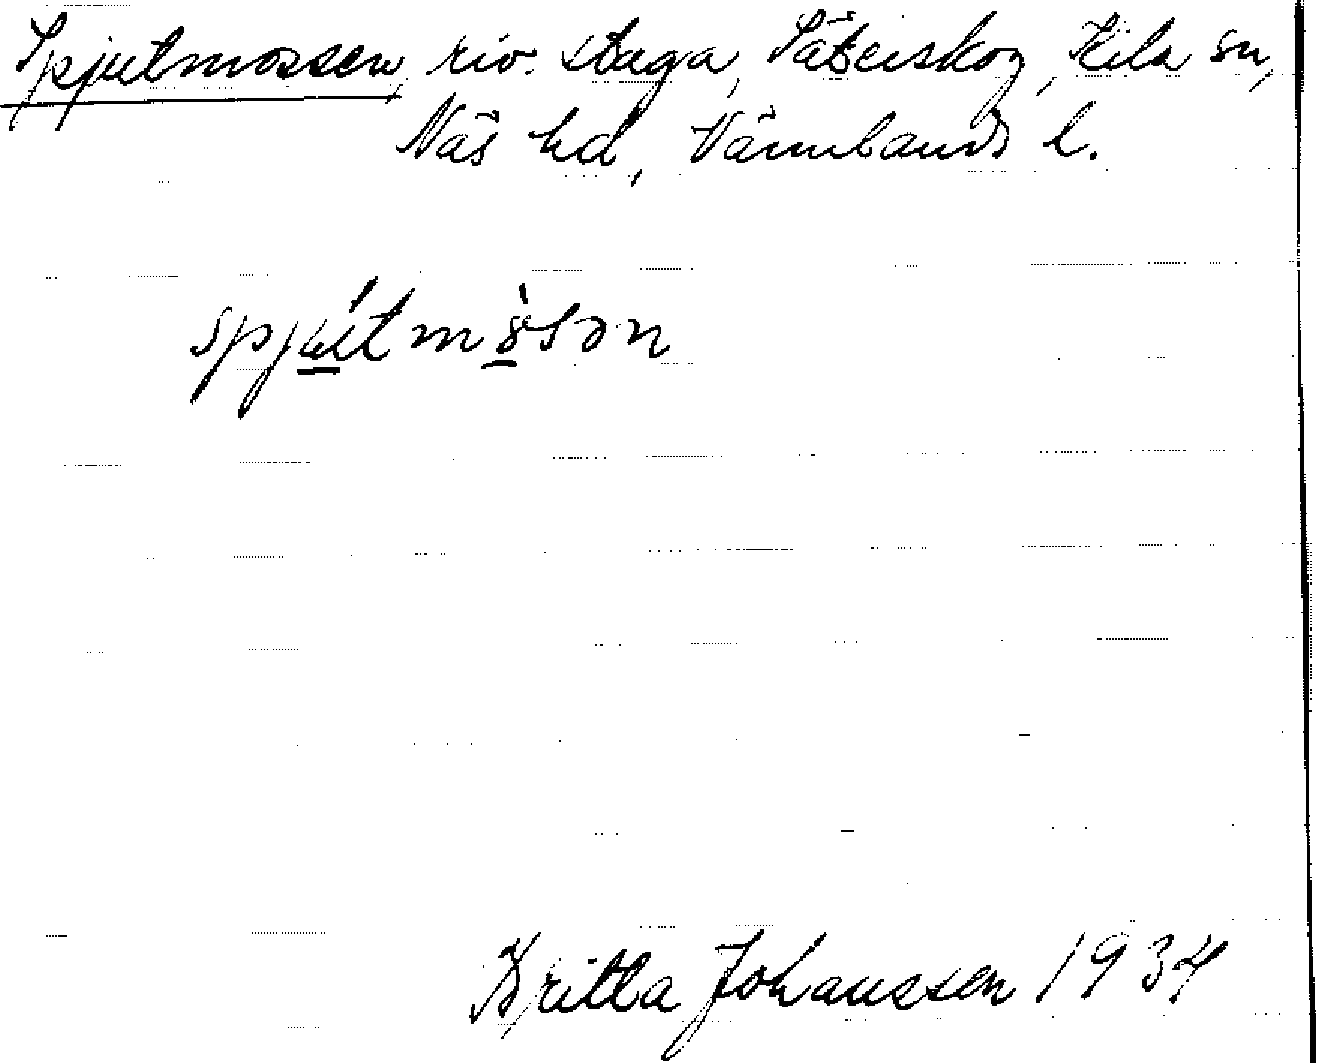 Spjutmossen, riv. staga, Säterskog, Kila sn,
Näs hd, Värmlands l.
spjút mòsən
Britta Johanssen 1934